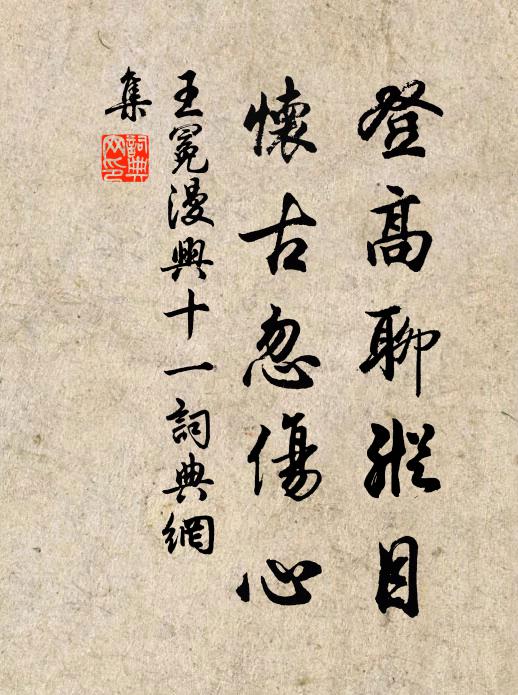 登高聊縱目
懷古忽傷心
王冕漫興十一詞典網
集
詞典
网印